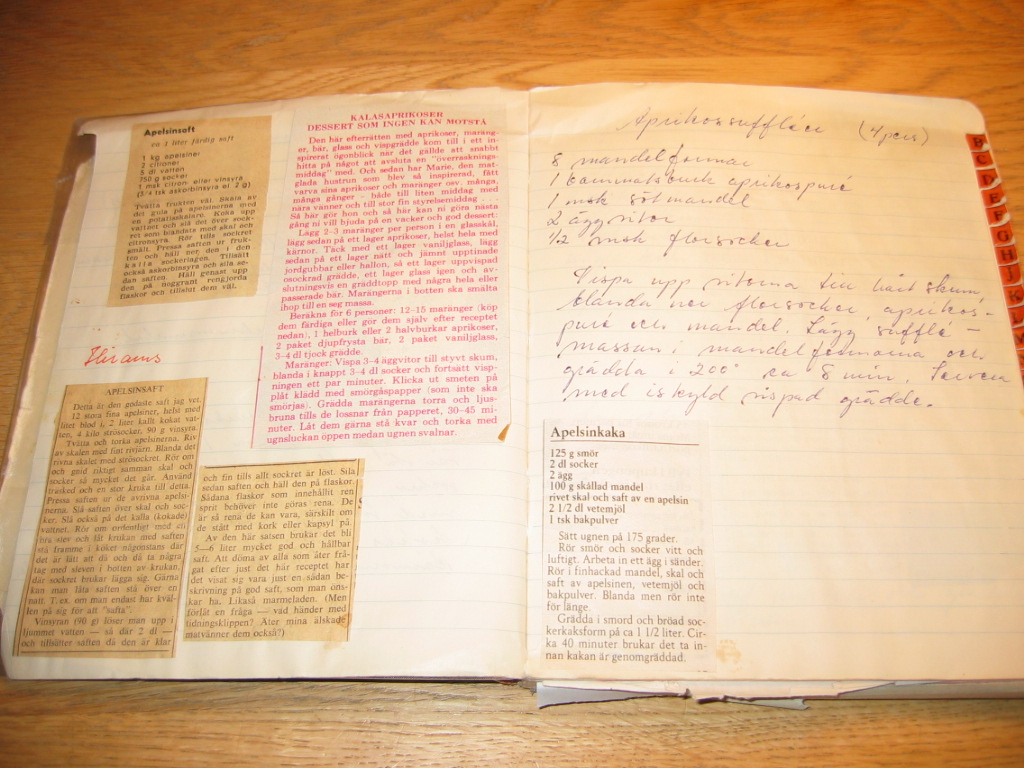 Apelsinsaft
ca 1 liter färdig saft
1 kg apelsiner
2 citroner
5 dl vatten
750 g socker
1 msk citron- eller vinsyra
(3/4 tsk askorbinsyra el 2 g)
Tvätta frukten väl. Skala av
det gula på apelsinerna med
en potatisskalare. Koka upp
vattnet och slå det över sock-
ret som blandats med skal och
citronsyra. Rör tills sockret
smält. Pressa saften ur fruk-
ten och häll ner den i den
kalla sockerlagen. Tillsätt
också askorbinsyra och sila se-
dan saften. Häll genast upp
den på noggrant rengjorda
flaskor och tillslut dem väl.
KALASAPRIKOSER
DESSERT SOM INGEN KAN MOTSTÅ
Den här efterrätten med aprikoser, maräng-
er, bär, glass och vispgrädde kom till i ett in-
spirerat ögonblick när det gällde att snabbt
hitta på något att avsluta en "överrasknings-
middag" med. Och sedan har Marie, den mat-
glada hustrun som blev så inspirerad, fått
varva sina aprikoser och maränger osv. många,
många gånger – både till liten middag med
nära vänner och till stor fin styrelsemiddag . . .
Så här gör hon och så här kan ni göra nästa
gång ni vill bjuda på en vacker och god dessert:
Lägg 2–3 maränger per person i en glasskål,
lägg sedan på ett lager aprikoser, helst hela med
kärnor. Täck med ett lager vaniljglass, lägg
sedan på ett lager nätt och jämnt upptinade
jordgubbar eller hallon, så ett lager uppvispad
osockrad grädde, ett lager glass igen och av-
slutningsvis en gräddtopp med några hela eller
passerade bär. Marängerna i botten ska smälta
ihop till en seg massa.
Beräkna för 6 personer: 12–15 maränger (köp
dem färdiga eller gör dem själv efter receptet
nedan), 1 helburk eller 2 halvburkar aprikoser,
2 paket djupfrysta bär, 2 paket vaniljglass,
3–4 dl tjock grädde.
Maränger: Vispa 3–4 äggvitor till styvt skum,
blanda i knappt 3–4 dl socker och fortsätt visp-
ningen ett par minuter. Klicka ut smeten på
plåt klädd med smörgåspapper (som inte ska
smörjas). Grädda marängerna torra och ljus-
bruna tills de lossnar från papperet, 30–45 mi-
nuter. Låt dem gärna stå kvar och torka med
ugnsluckan öppen medan ugnen svalnar.
Hirams
APELSINSAFT
Detta är den godaste saft jag vet.
12 stora fina apelsiner, helst med
litet blod i, 2 liter kallt kokat vat-
ten, 4 kilo strösocker, 90 g vinsyra.
Tvätta och torka apelsinerna. Riv
av skalen med fint rivjärn. Blanda det
rivna skalet med strösockret. Rör om
och gnid riktigt samman skal och
socker så mycket det går. Använd
träsked och en stor kruka till detta.
Pressa saften ur de avrivna apelsi-
nerna. Slå saften över skal och soc-
ker. Slå också på det kalla (kokade)
vattnet. Rör om ordentligt med en
bra slev och låt krukan med saften
stå framme i köket någonstans där
det är lätt att då och då ta några
tag med sleven i botten av krukan,
där sockret brukar lägga sig. Gärna
kan man låta saften stå över en
natt. T. ex. om man endast har kväl-
len på sig för att "safta".
Vinsyran (90 g) löser man upp i
ljummet vatten — så där 2 dl —
och tillsätter saften då den är klar
och fin tills allt sockret är löst. Sila
sedan saften och häll den på flaskor.
Sådana flaskor som innehållit ren
sprit behöver inte göras rena. De
är så rena de kan vara, särskilt om
de stått med kork eller kapsyl på.
Av den här satsen brukar det bli
5—6 liter mycket god och hållbar
saft. Att döma av alla som åter frå-
gat efter just det här receptet har
det visat sig vara just en sådan be-
skrivning på god saft, som man öns-
kar ha. Likaså marmeladen. (Men
förlåt en fråga — vad händer med
tidningsklippen? Äter mina älskade
matvänner dem också?)
Aprikossufflée (4 pers)
8 mandelformar
1 barnmatsburk aprikospuré
1 msk sötmandel
2 äggvitor
1/2 msk florsocker
Vispa upp vitorna till hårt skum,
blanda ner florsocker aprikos-
puré och mandel. Lägg sufflé-
massan i mandelformarna och
grädda i 200° ca 8 min. Servera
med iskyld vispad grädde.
Apelsinkaka
125 g smör
2 dl socker
2 ägg
100 g skållad mandel
rivet skal och saft av en apelsin
2 1/2 dl vetemjöl
1 tsk bakpulver
Sätt ugnen på 175 grader.
Rör smör och socker vitt och
luftigt. Arbeta in ett ägg i sänder.
Rör i finhackad mandel, skal och
saft av apelsinen, vetemjöl och
bakpulver. Blanda men rör inte
för länge.
Grädda i smord och bröad soc-
kerkaksform på ca 1 1/2 liter. Cir-
ka 40 minuter brukar det ta in-
nan kakan är genomgräddad.
B
C
D
E
F
G
H
J
K
L